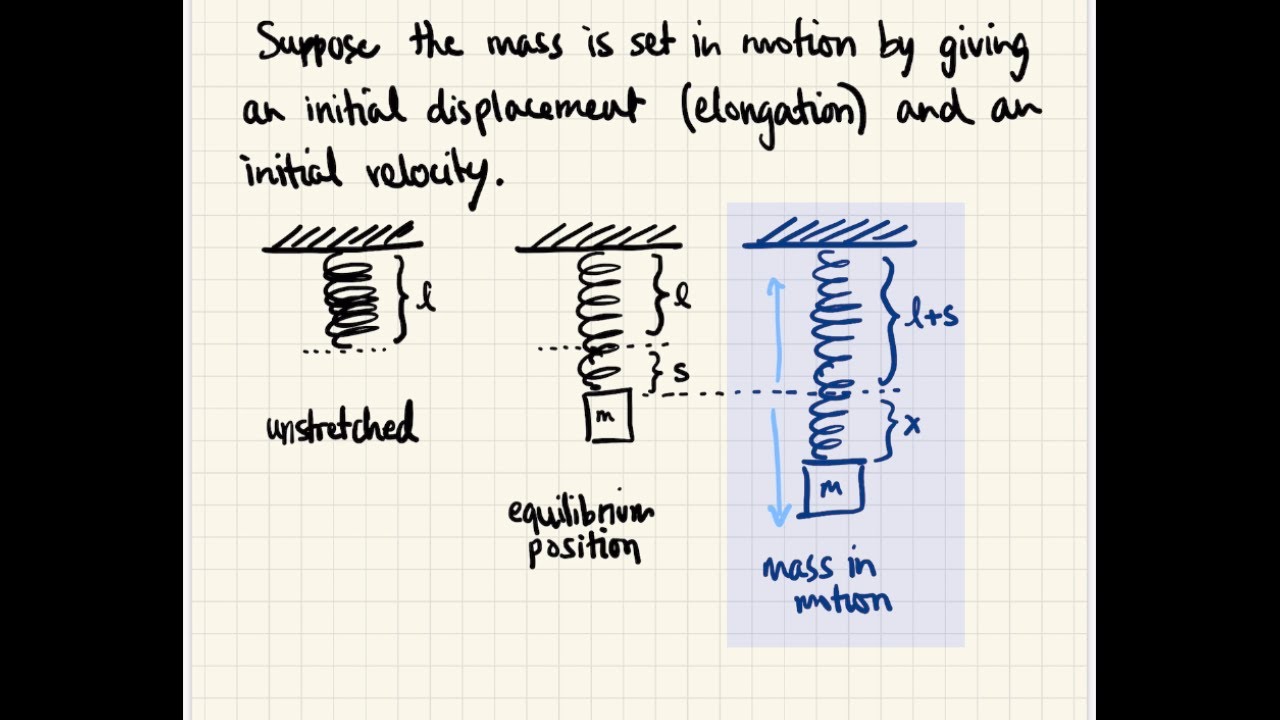 Suppose the mass is set in motion by giving
an initial displacement (elongation) and an
initial velocity.
l
unstretched
l
s
m
equilibrium
position
l+s
x
m
mass in
motion